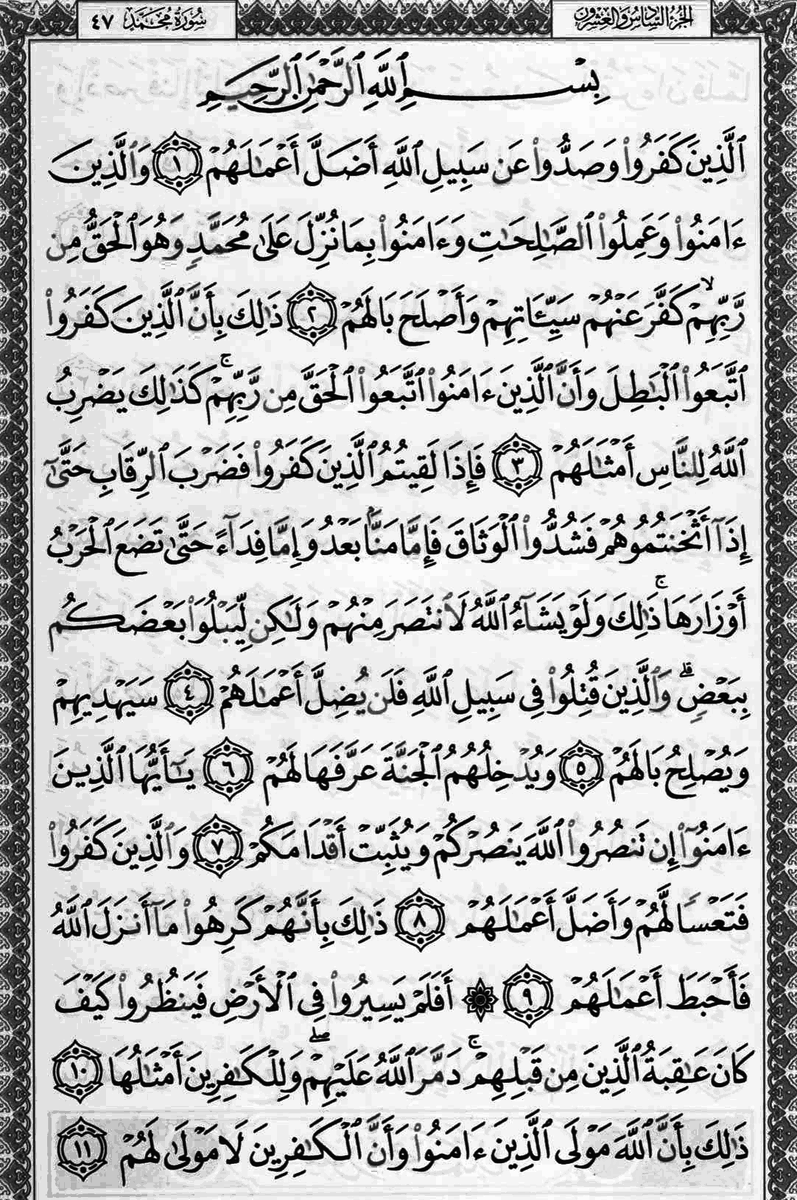 الجزء السادس والعشرون سورة محمد ٤٧
بِسْمِ ٱللَّهِ ٱلرَّحْمَٰنِ ٱلرَّحِيمِ
ٱلَّذِينَ كَفَرُوا۟ وَصَدُّوا۟ عَن سَبِيلِ ٱللَّهِ أَضَلَّ أَعْمَٰلَهُمْ ١ وَٱلَّذِينَ
ءَامَنُوا۟ وَعَمِلُوا۟ ٱلصَّٰلِحَٰتِ وَءَامَنُوا۟ بِمَا نُزِّلَ عَلَىٰ مُحَمَّدٍ وَهُوَ ٱلْحَقُّ مِن
رَّبِّهِمْ ۙ كَفَّرَ عَنْهُمْ سَيِّـَٔاتِهِمْ وَأَصْلَحَ بَالَهُمْ ٢ ذَٰلِكَ بِأَنَّ ٱلَّذِينَ كَفَرُوا۟
ٱتَّبَعُوا۟ ٱلْبَٰطِلَ وَأَنَّ ٱلَّذِينَ ءَامَنُوا۟ ٱتَّبَعُوا۟ ٱلْحَقَّ مِن رَّبِّهِمْ ۚ كَذَٰلِكَ يَضْرِبُ
ٱللَّهُ لِلنَّاسِ أَمْثَٰلَهُمْ ٣ فَإِذَا لَقِيتُمُ ٱلَّذِينَ كَفَرُوا۟ فَضَرْبَ ٱلرِّقَابِ حَتَّىٰٓ
إِذَآ أَثْخَنتُمُوهُمْ فَشُدُّوا۟ ٱلْوَثَاقَ فَإِمَّا مَنًّۢا بَعْدُ وَإِمَّا فِدَآءً حَتَّىٰ تَضَعَ ٱلْحَرْبُ
أَوْزَارَهَا ۚ ذَٰلِكَ وَلَوْ يَشَآءُ ٱللَّهُ لَٱنتَصَرَ مِنْهُمْ وَلَٰكِن لِّيَبْلُوَا۟ بَعْضَكُم
بِبَعْضٍ ۗ وَٱلَّذِينَ قُتِلُوا۟ فِى سَبِيلِ ٱللَّهِ فَلَن يُضِلَّ أَعْمَٰلَهُمْ ٤ سَيَهْدِيهِمْ
وَيُصْلِحُ بَالَهُمْ ٥ وَيُدْخِلُهُمُ ٱلْجَنَّةَ عَرَّفَهَا لَهُمْ ٦ يَٰٓأَيُّهَا ٱلَّذِينَ
ءَامَنُوٓا۟ إِن تَنصُرُوا۟ ٱللَّهَ يَنصُرْكُمْ وَيُثَبِّتْ أَقْدَامَكُمْ ٧ وَٱلَّذِينَ كَفَرُوا۟
فَتَعْسًا لَّهُمْ وَأَضَلَّ أَعْمَٰلَهُمْ ٨ ذَٰلِكَ بِأَنَّهُمْ كَرِهُوا۟ مَآ أَنزَلَ ٱللَّهُ
فَأَحْبَطَ أَعْمَٰلَهُمْ ٩ ۞ أَفَلَمْ يَسِيرُوا۟ فِى ٱلْأَرْضِ فَيَنظُرُوا۟ كَيْفَ
كَانَ عَٰقِبَةُ ٱلَّذِينَ مِن قَبْلِهِمْ ۚ دَمَّرَ ٱللَّهُ عَلَيْهِمْ ۖ وَلِلْكَٰفِرِينَ أَمْثَٰلُهَا ١٠
ذَٰلِكَ بِأَنَّ ٱللَّهَ مَوْلَى ٱلَّذِينَ ءَامَنُوا۟ وَأَنَّ ٱلْكَٰفِرِينَ لَا مَوْلَىٰ لَهُمْ ١١